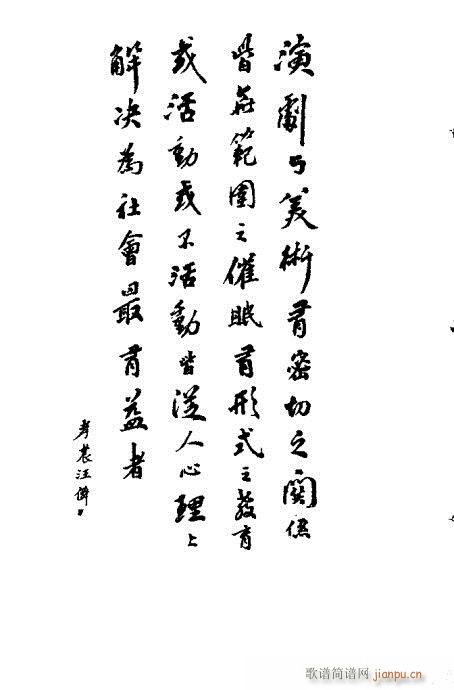 演劇与美術有密切之關係
皆無範圍之催眠有形式之教育
或活動或不活動皆從人心理上
解决為社會最有益者
歌谱简谱网
jianpu.cn